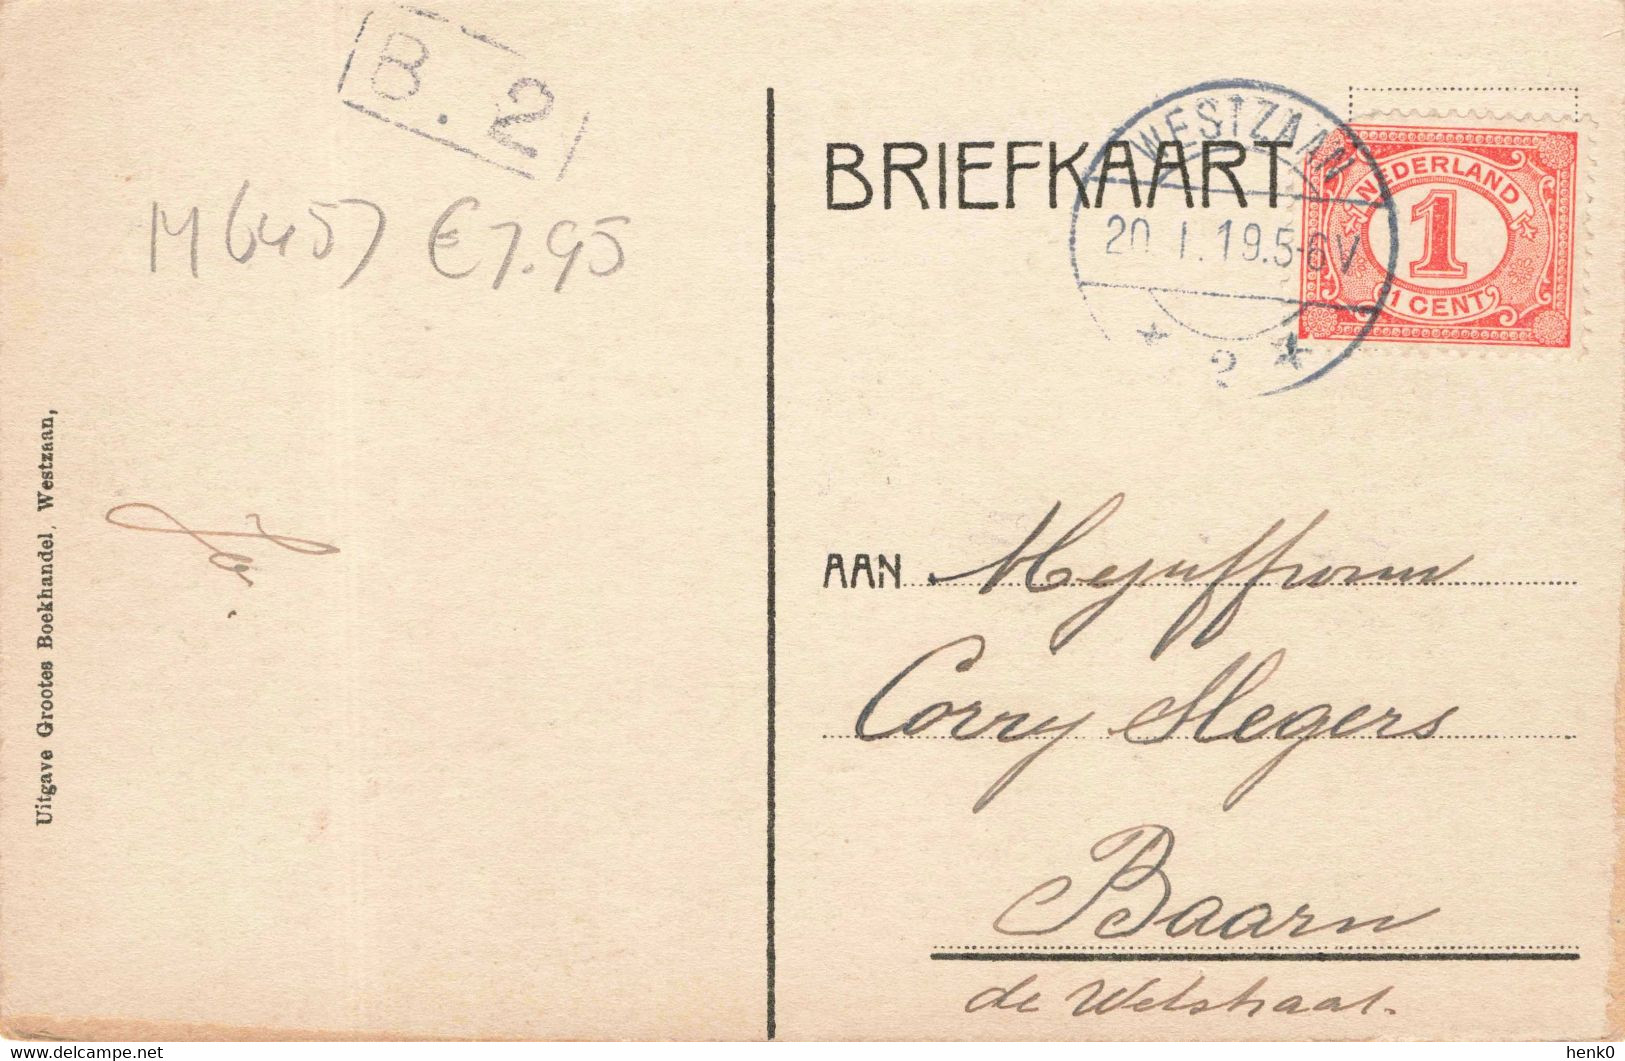 B. 2
M6457 €7.95
BRIEFKAART
WESTZAAN
20.1.19.5-6V
NEDERLAND
1
1 CENT
Uitgave Grootes Boekhandel, Westzaan,
AAN Mejuffrouw
Corry Slegers
Baarn
de Wetstraat.
www.delcampe.net
henk0